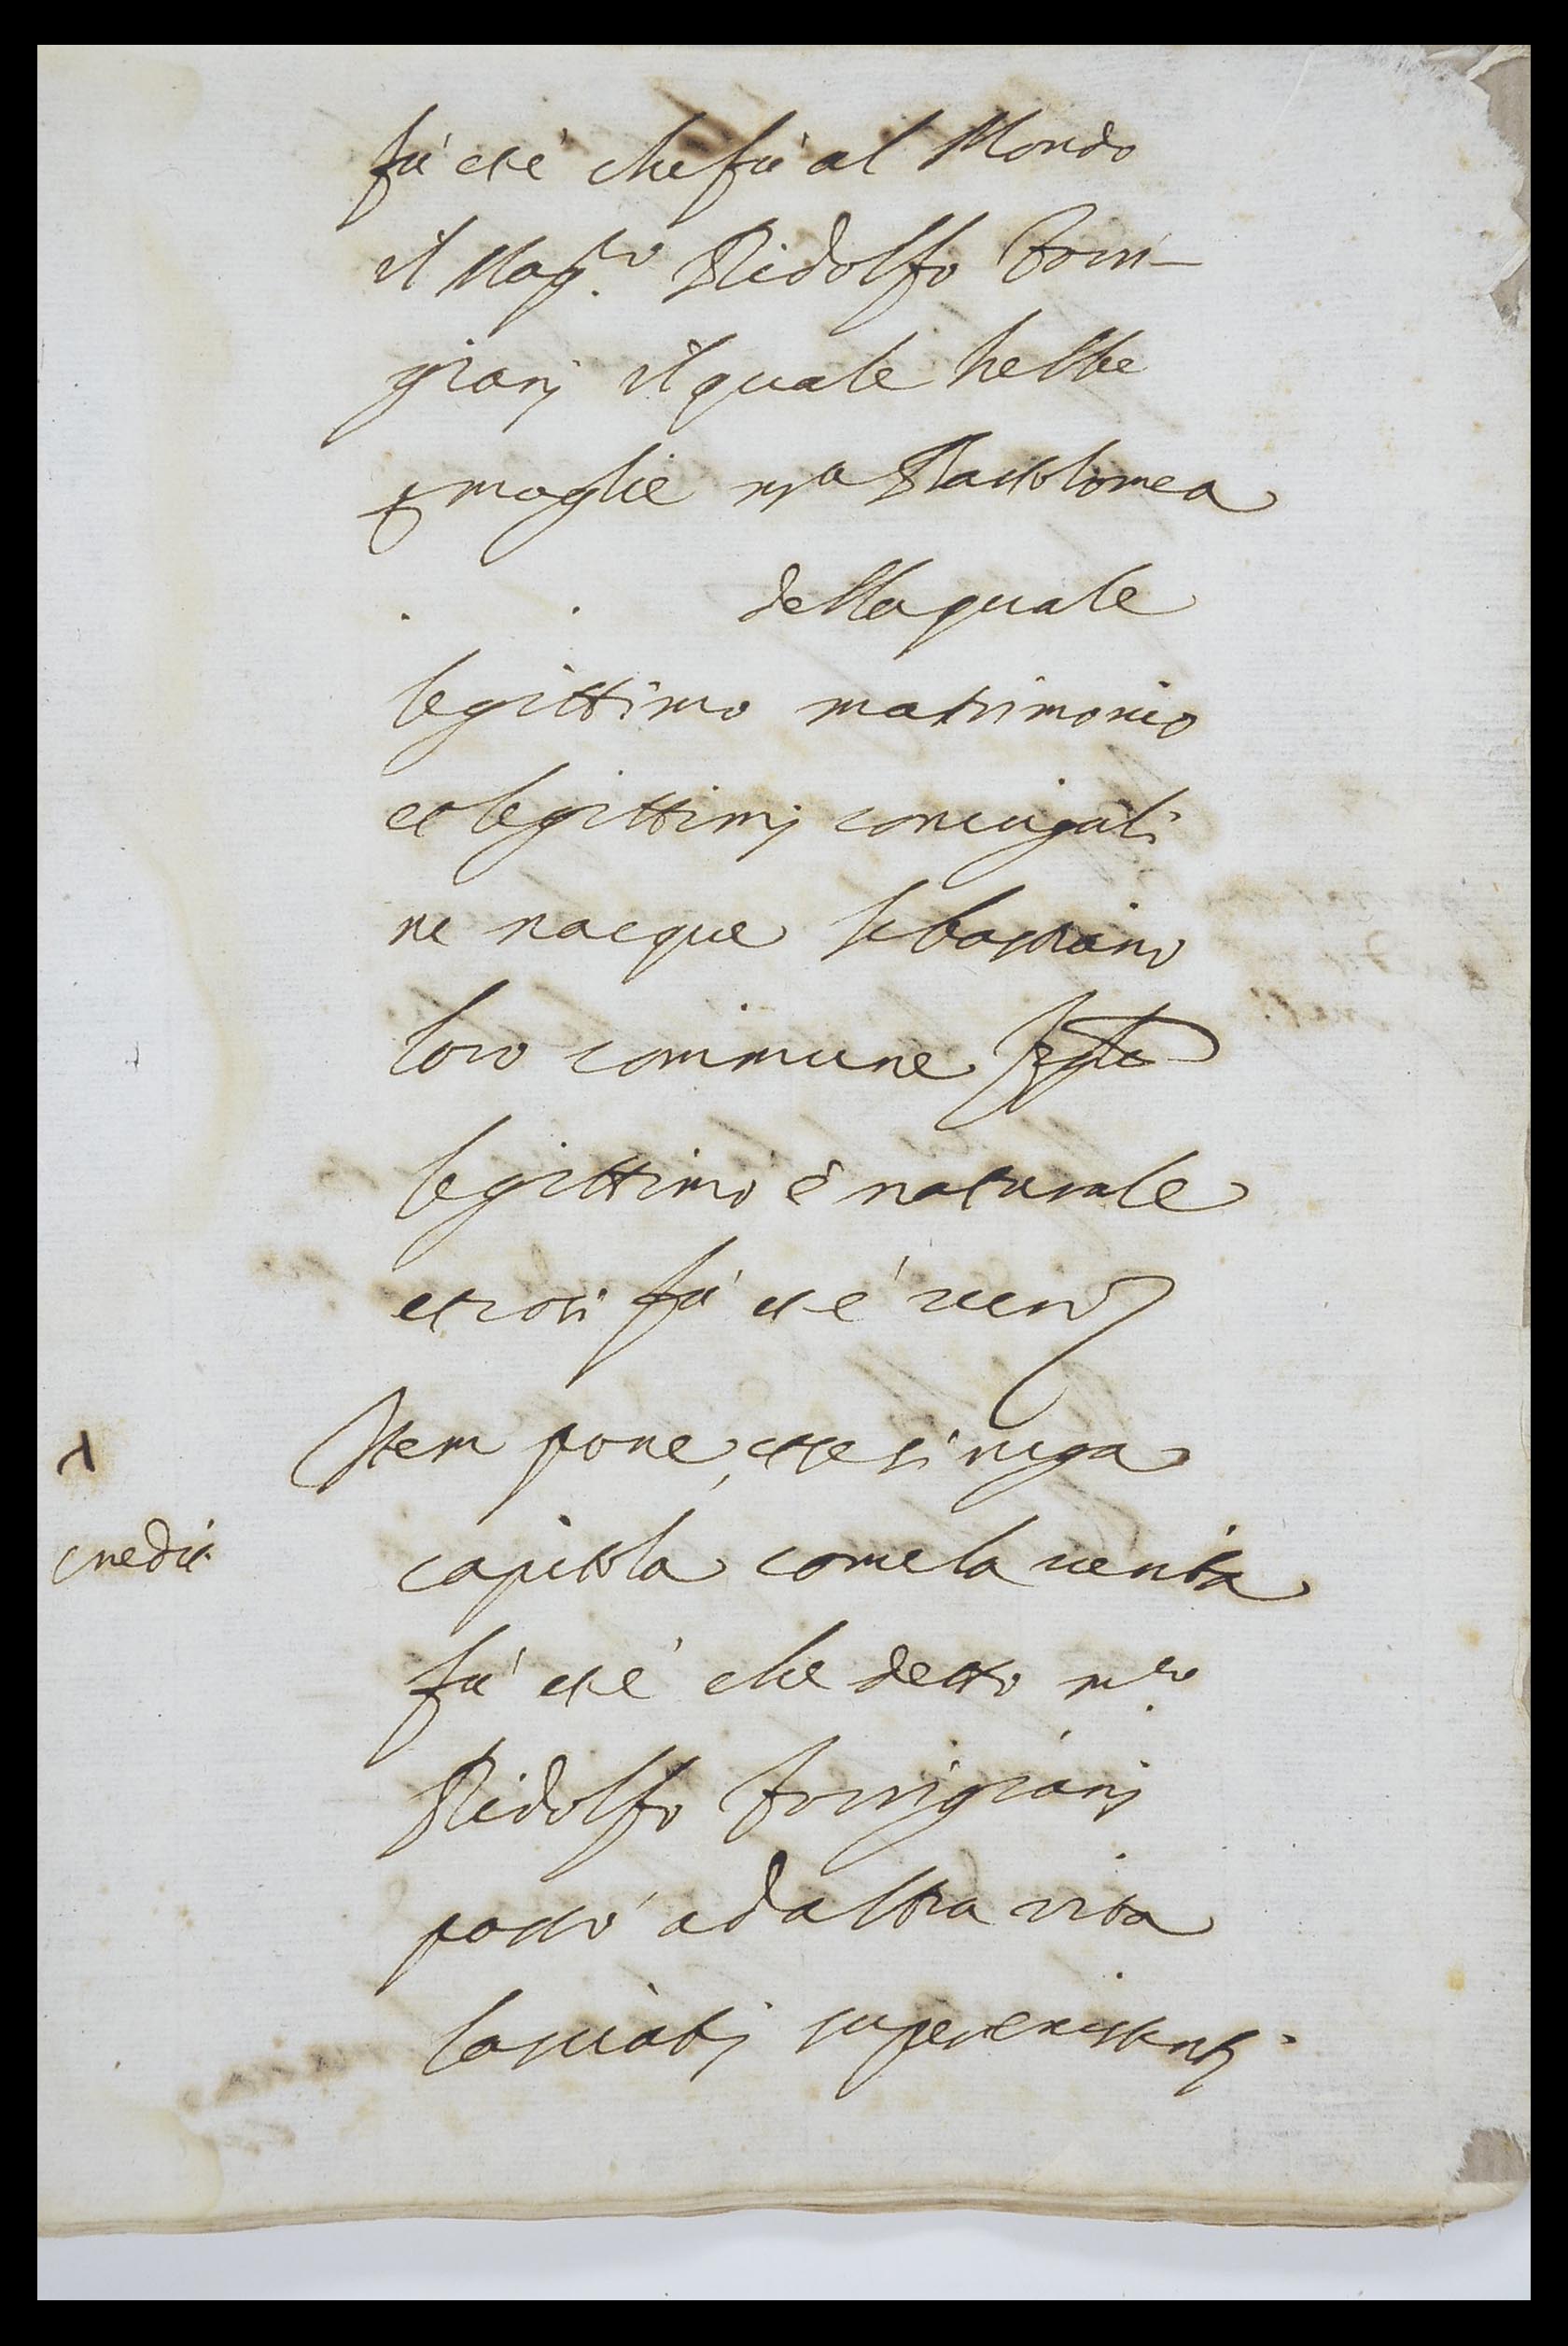 fù et è che fù al Mondo
il Mag.co Ridolfo Forni-
giani il quale hebbe
p moglie m.a Bartolomea
. . della quale
legittimo matrimonio
et legittimj coniugati
ne nacque Sebastiano
loro commune
legittimo è naturale
et così fù et è vero
Item pone, et se si nega
capitola come la verità
fù et è che detto m.ro
Ridolfo Fornigianj
passò ad altra vita
lasciatj superexistentj
credit